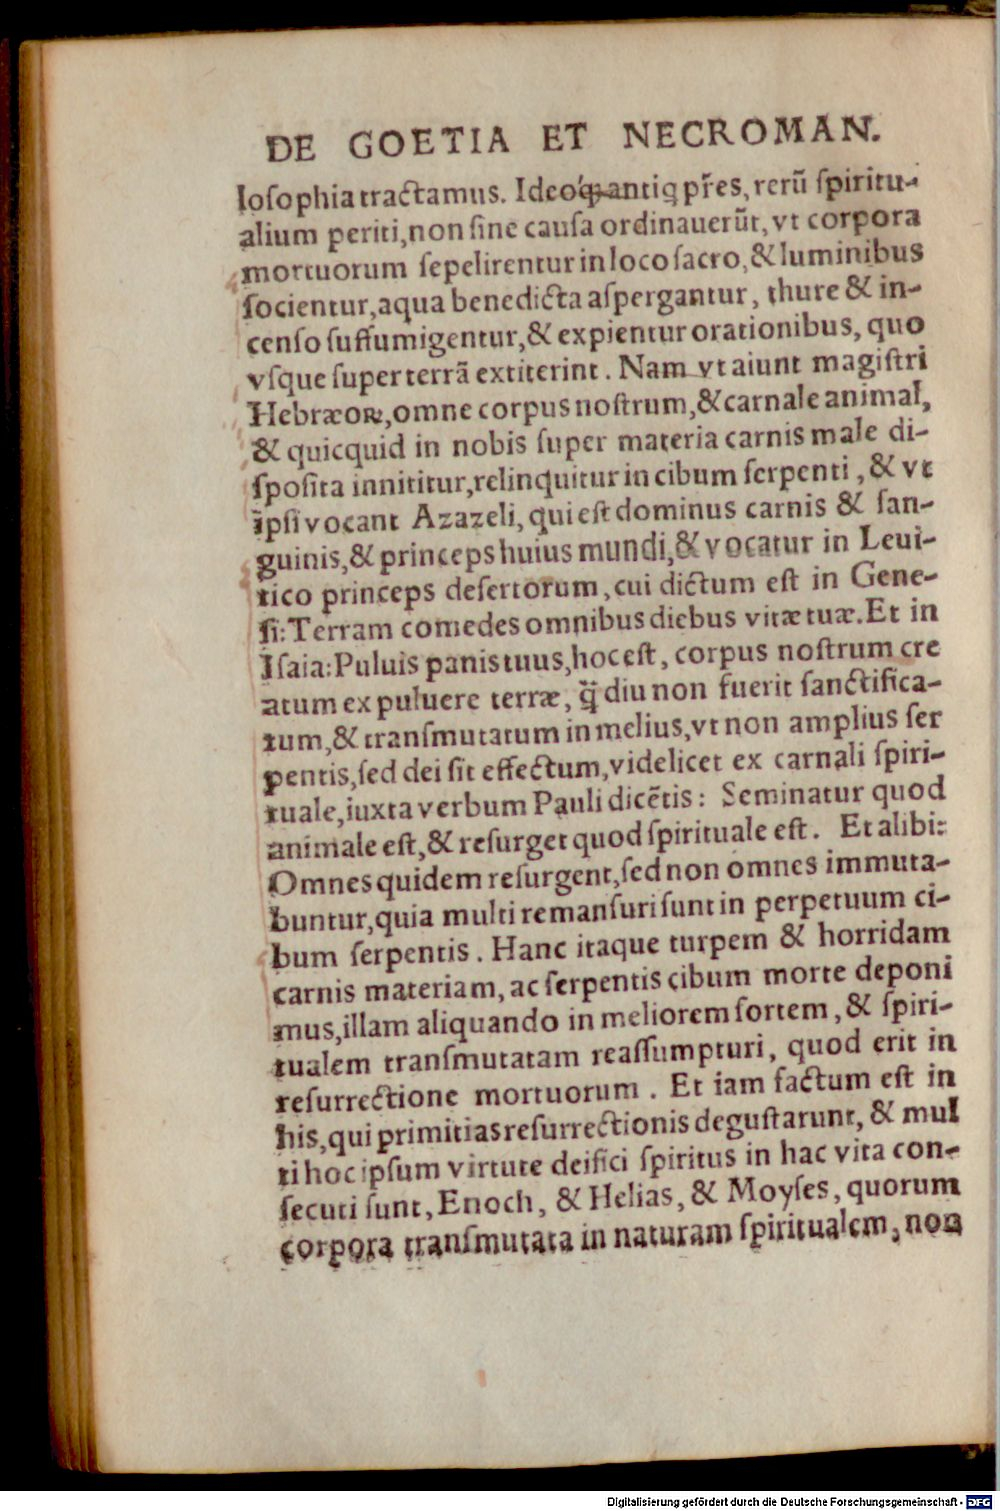 DE GOETIA ET NECROMAN.
losophia tractamus. Ideoq́; antiq pr̃es, rerũ ſpiritu-
alium periti, non ſine cauſa ordinauerũt, vt corpora
mortuorum ſepelirentur in loco ſacro, & luminibus
ſocientur, aqua benedicta aſpergantur, thure & in-
cenſo ſuffumigentur, & expientur orationibus, quo
vſque ſuper terrã extiterint. Nam vt aiunt magiſtri
Hebræoꝝ, omne corpus noſtrum, & carnale animal,
& quicquid in nobis ſuper materia carnis male di-
ſpoſita innititur, relinquitur in cibum ſerpenti, & vt
ipſi vocant Azazeli, qui eſt dominus carnis & ſan-
guinis, & princeps huius mundi, & vocatur in Leui-
tico princeps deſertorum, cui dictum eſt in Gene-
ſi: Terram comedes omnibus diebus vitæ tuæ. Et in
Iſaia: Puluis panis tuus, hoc eſt, corpus noſtrum cre
atum ex puluere terræ, q̃ diu non fuerit ſanctifica-
tum, & tranſmutatum in melius, vt non amplius ſer
pentis, ſed dei ſit effectum, videlicet ex carnali ſpiri-
tuale, iuxta verbum Pauli dicẽtis: Seminatur quod
animale eſt, & reſurget quod ſpirituale eſt. Et alibi:
Omnes quidem reſurgent, ſed non omnes immuta-
buntur, quia multi remanſuri ſunt in perpetuum ci-
bum ſerpentis. Hanc itaque turpem & horridam
carnis materiam, ac ſerpentis cibum morte deponi
mus, illam aliquando in meliorem ſortem, & ſpiri-
tualem tranſmutatam reaſſumpturi, quod erit in
reſurrectione mortuorum. Et iam factum eſt in
his, qui primitias reſurrectionis deguſtarunt, & mul
ti hoc ipſum virtute deifici ſpiritus in hac vita con-
ſecuti ſunt, Enoch, & Helias, & Moyſes, quorum
corpora tranſmutata in naturam ſpiritualem, non
Digitalisierung gefördert durch die Deutsche Forschungsgemeinschaft - DFG